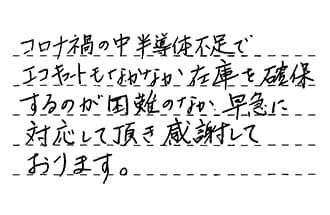 コロナ禍の中半導体不足で
エコキュートもなかなか在庫を確保
するのが困難のなか早急に
対応して頂き感謝して
おります。